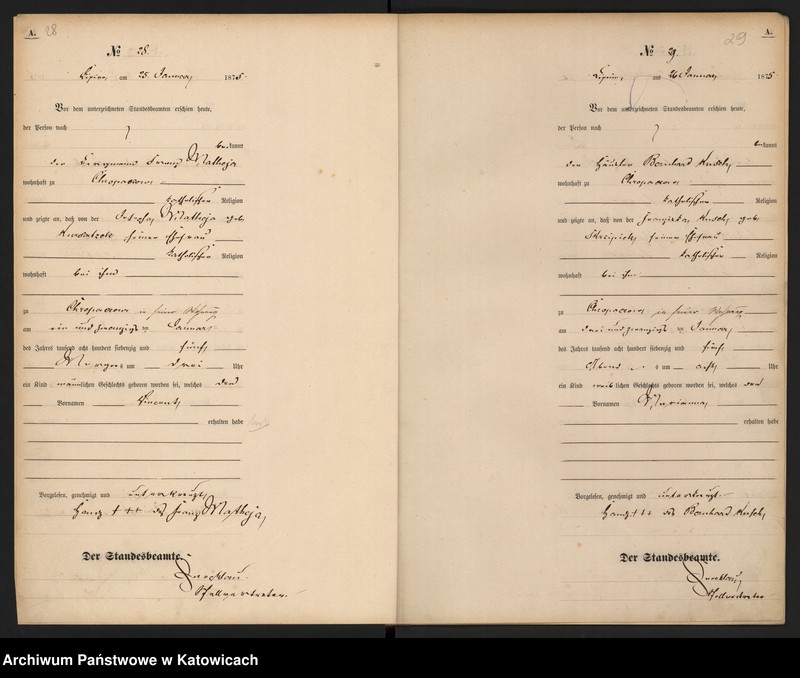 A. 28
№ 28.
Lipine, am 25 Januar 1875
Vor dem unterzeichneten Standesbeamten erschien heute,
der Person nach
bekannt
der Bergmann Franz Matheja
wohnhaft zu Chropaczow
katholischer Religion
und zeigte an, daß von der Josepha Matheja geb
seiner Ehefrau
katholischer Religion
wohnhaft bei ihm
zu Chropaczow in seiner Wohnung
am ein und zwanzigst en Januar
des Jahres tausend acht hundert siebenzig und fünf
Morgens um drei Uhr
ein Kind männlichen Geschlechts geboren worden sei, welches den
Vornamen Vincent
erhalten habe
Vorgelesen, genehmigt und unterkreuzt
Handz + + + des Franz Matheja
Der Standesbeamte.
Stellvertreter.
A.
29
№ 29.
Lipine, am 26 Januar 1875
Vor dem unterzeichneten Standesbeamten erschien heute,
der Person nach
bekannt
der Häusler Bernhard
wohnhaft zu Chropaczow
katholischer Religion
und zeigte an, daß von der geb
seiner Ehefrau
katholischer Religion
wohnhaft bei ihm
zu Chropaczow in seiner Wohnung
am drei und zwanzigst en Januar
des Jahres tausend acht hundert siebenzig und fünf
Abend s um acht Uhr
ein Kind weiblichen Geschlechts geboren worden sei, welches den
Vornamen Marianna
erhalten habe
Vorgelesen, genehmigt und unterkreuzt
Handz + + + des Bernhard
Der Standesbeamte.
Stellvertreter
Archiwum Państwowe w Katowicach